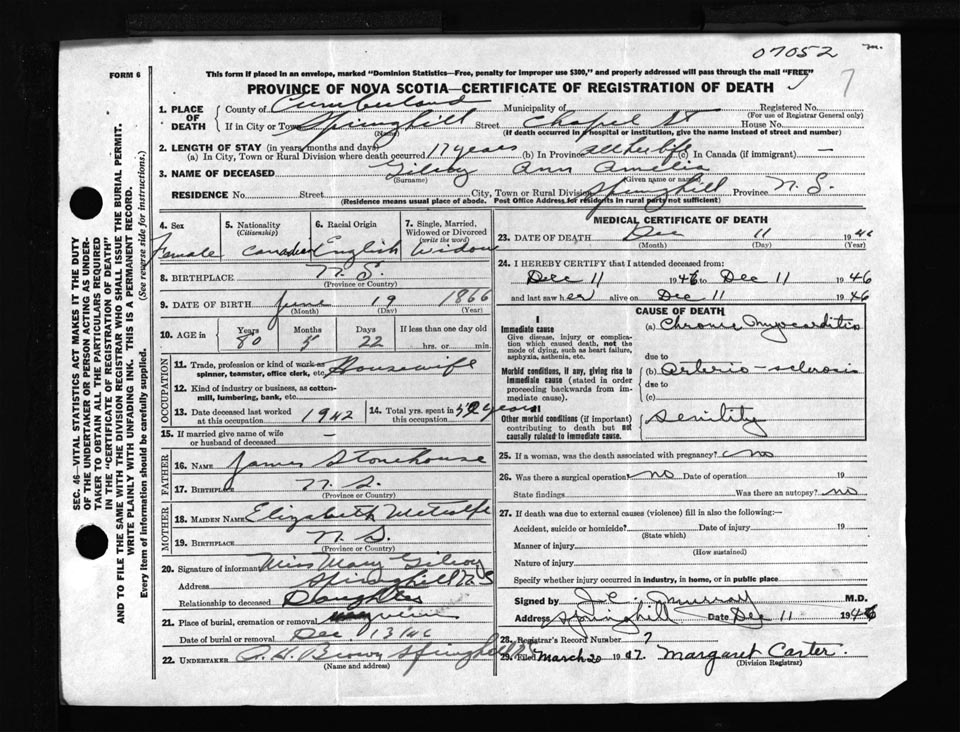 07052
FORM 6
This form if placed in an envelope, marked "Dominion Statistics—Free, penalty for improper use $300," and properly addressed will pass through the mail "FREE"
7
PROVINCE OF NOVA SCOTIA—CERTIFICATE OF REGISTRATION OF DEATH
SEC. 46—VITAL STATISTICS ACT MAKES IT THE DUTY
OF THE UNDERTAKER OR PERSON ACTING AS UNDER-
TAKER TO OBTAIN ALL THE PARTICULARS REQUIRED
IN THE "CERTIFICATE OF REGISTRATION OF DEATH"
AND TO FILE THE SAME WITH THE DIVISION REGISTRAR WHO SHALL ISSUE THE BURIAL PERMIT.
WRITE PLAINLY WITH UNFADING INK. THIS IS A PERMANENT RECORD.
Every item of information should be carefully supplied. (See reverse side for instructions.)
1. PLACE OF DEATH County of Cumberland Municipality of Registered No.
(For use of Registrar General only)
If in City or Town Springhill Street Chapel St House No.
(Name) (If death occurred in a hospital or institution, give the name instead of street and number)
2. LENGTH OF STAY (in years, months and days)
(a) In City, Town or Rural Division where death occurred 17 years (b) In Province all her life (c) In Canada (if immigrant) —
3. NAME OF DECEASED Gilroy Ann Amelia
(Surname) (Given name or names)
RESIDENCE No. Street City, Town or Rural Division Springhill Province N. S.
(Residence means usual place of abode. Post Office Address for residents in rural parts not sufficient)
4. Sex Female
5. Nationality (Citizenship) Canadian
6. Racial Origin English
7. Single, Married, Widowed or Divorced (write the word) Widow
8. BIRTHPLACE N. S.
(Province or Country)
9. DATE OF BIRTH June 19 1866
(Month) (Day) (Year)
10. AGE in Years 80 Months 5 Days 22 If less than one day old
hrs. or min.
OCCUPATION
11. Trade, profession or kind of work as spinner, teamster, office clerk, etc. Housewife
12. Kind of industry or business, as cotton-mill, lumbering, bank, etc.
13. Date deceased last worked at this occupation 1942 14. Total yrs. spent in this occupation years
15. If married give name of wife or husband of deceased —
FATHER
16. NAME James Stonehouse
17. BIRTHPLACE N. S.
(Province or Country)
MOTHER
18. MAIDEN NAME Elizabeth Metcalfe
19. BIRTHPLACE N. S.
(Province or Country)
20. Signature of informant Miss Mary Gilroy
Address Springhill N S
Relationship to deceased Daughter
21. Place of burial, cremation or removal
Date of burial or removal Dec 13/46
22. UNDERTAKER Brown Springhill
(Name and address)
MEDICAL CERTIFICATE OF DEATH
23. DATE OF DEATH Dec 11 1946
(Month) (Day) (Year)
24. I HEREBY CERTIFY that I attended deceased from:
Dec 11 1946 to Dec 11 1946
and last saw her alive on Dec 11 1946
CAUSE OF DEATH
I
Immediate cause
Give disease, injury or complication which caused death, not the mode of dying, such as heart failure, asphyxia, asthenia, etc.
(a) Chronic Myocarditis
due to
Morbid conditions, if any, giving rise to immediate cause (stated in order proceeding backwards from immediate cause).
(b) Arterio-sclerosis
due to
(c)
II
Other morbid conditions (if important) contributing to death but not causally related to immediate cause.
Senility
25. If a woman, was the death associated with pregnancy? no
26. Was there a surgical operation? no Date of operation 19
State findings Was there an autopsy? no
27. If death was due to external causes (violence) fill in also the following:—
Accident, suicide or homicide? Date of injury 19
(State which)
Manner of injury
(How sustained)
Nature of injury
Specify whether injury occurred in industry, in home, or in public place
Signed by Murray M.D.
Address Springhill Date Dec 11 1946
28. Registrar's Record Number 7
29. Filed March 20 1947. Margaret Carter.
(Division Registrar)